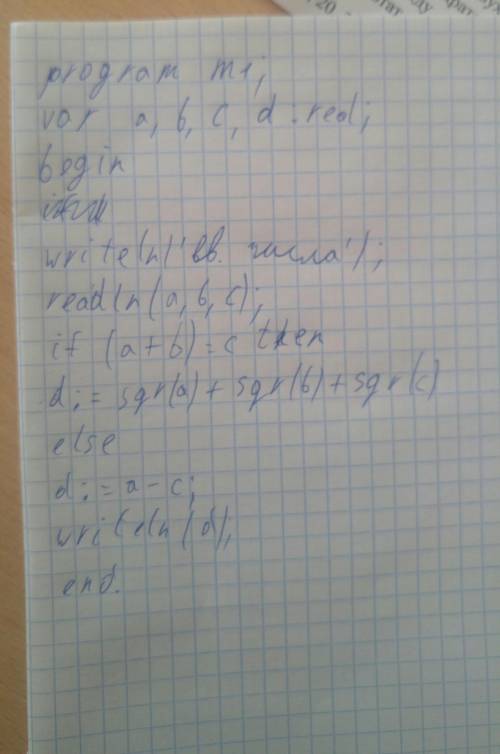 program m1;
var a, b, c, d : real;
begin
writeln('вв. числа');
readln(a, b, c);
if (a+b)=c then
d:=sqr(a)+sqr(b)+sqr(c)
else
d:=a-c;
writeln(d);
end.